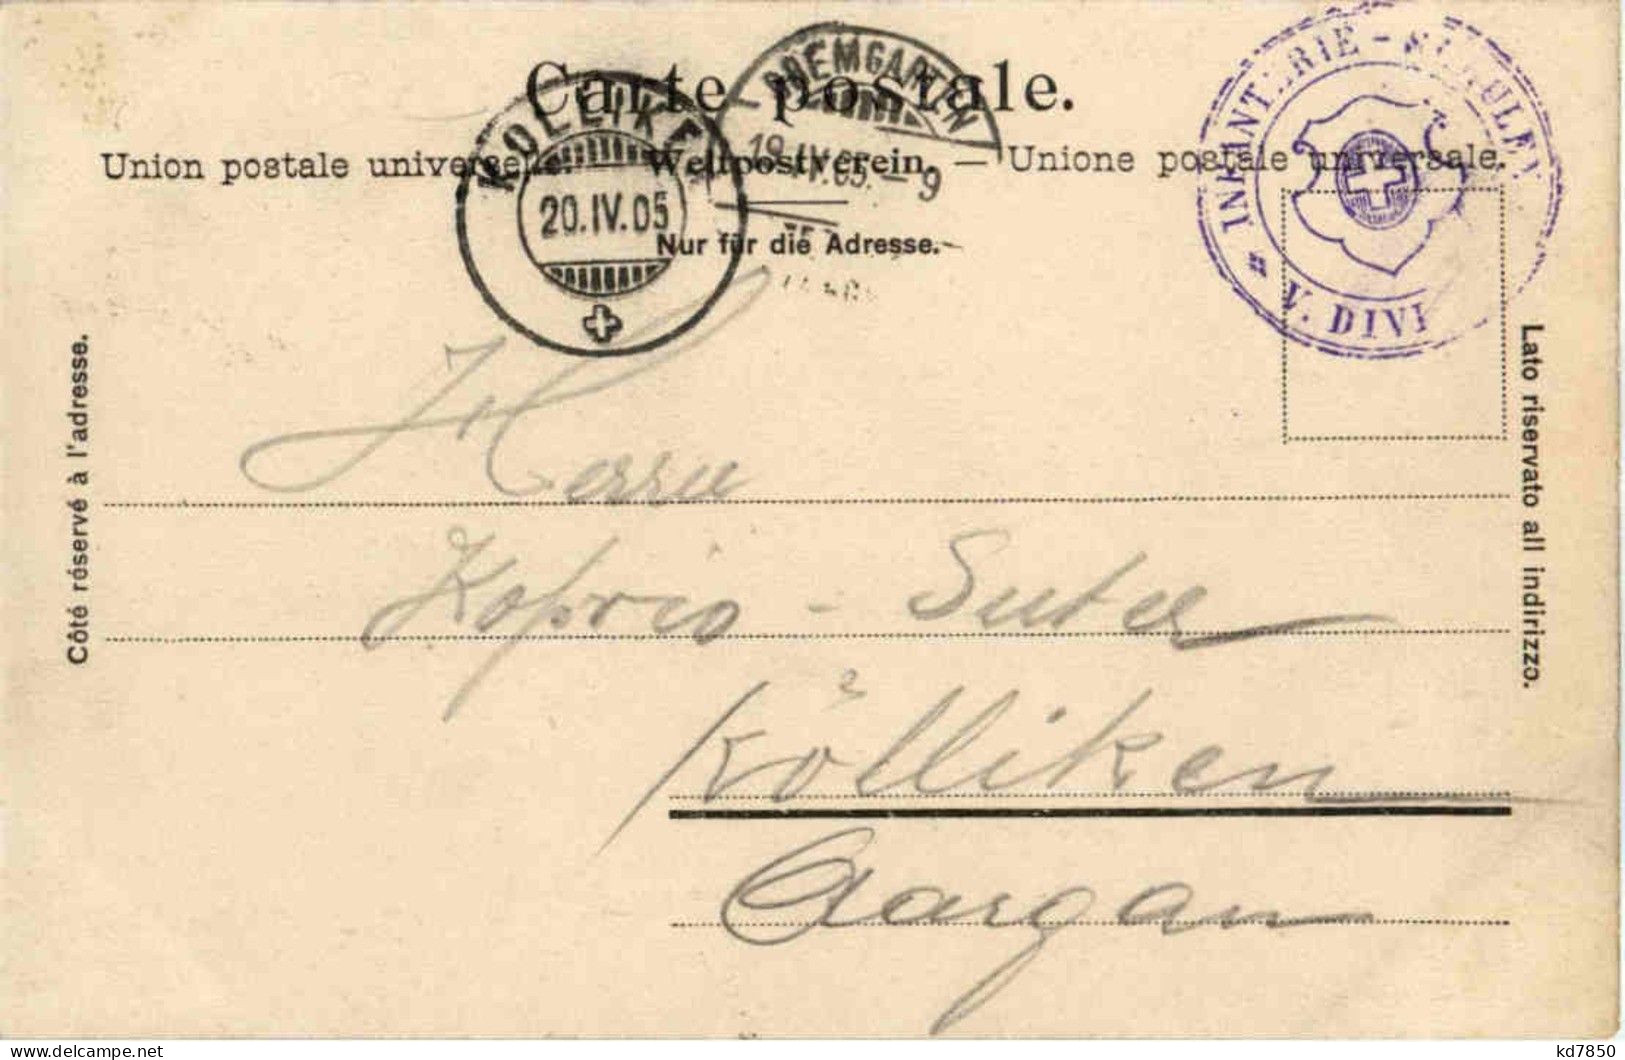 Carte postale.
BREMGARTEN
19.IV.05.–9
KÖLLIKEN
20.IV.05
INFANTERIE - SCHULEN
V. DIVI
Union postale universelle. — Weltpostverein. — Unione postale universale.
Nur für die Adresse.
Côté réservé à l'adresse.
Lato riservato all indirizzo.
Herrn
Koprio - Suter
Kölliken
Aargau
kd7850